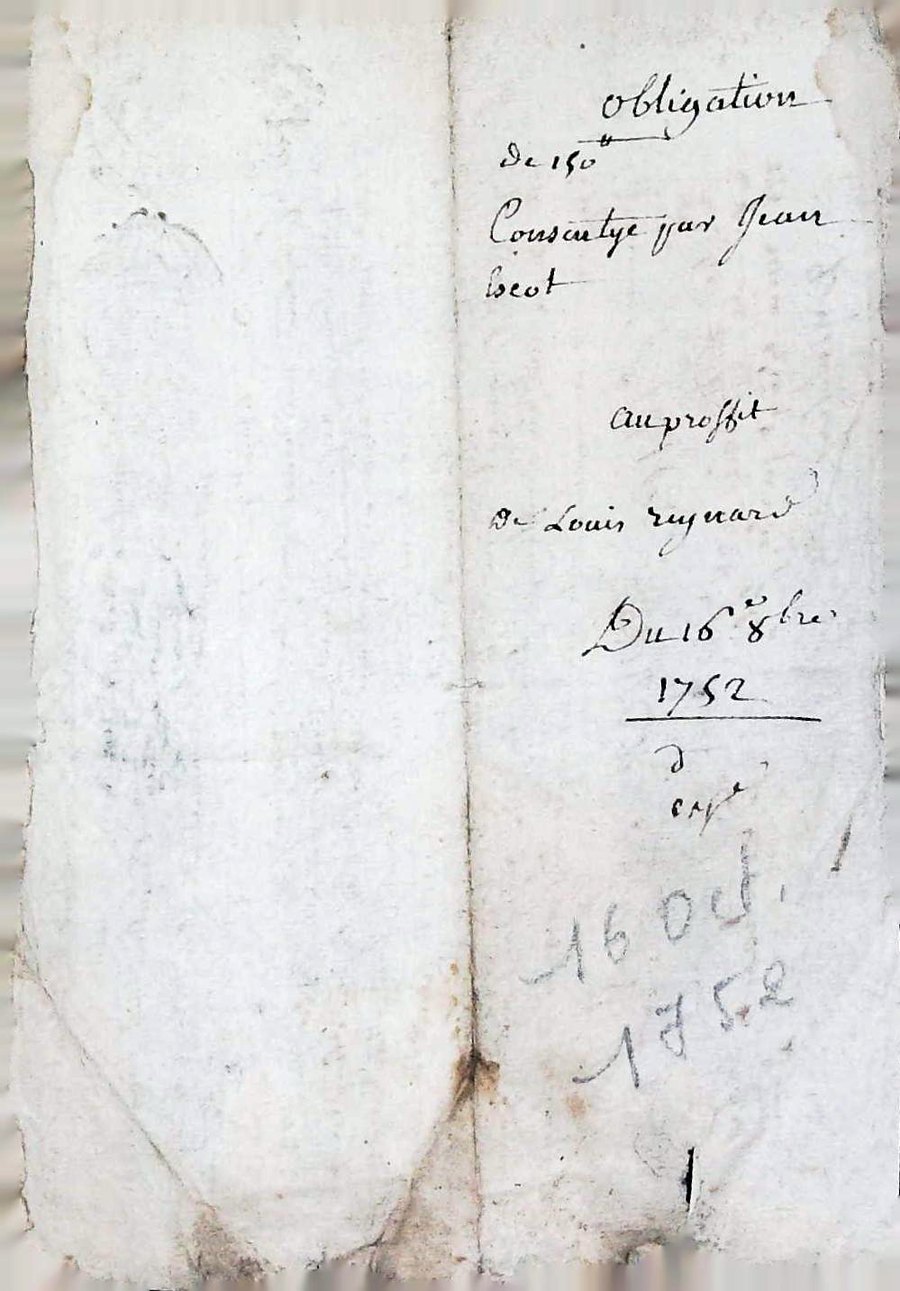 obligation
de 150ᵗᵗ
Consentye par Jean
Escot
au proffit
de Louis reynard
Du 16ᵉ 8bre
1752
d
16 Oct.
1752